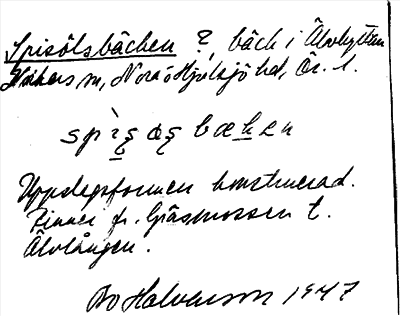 Spisölsbäcken ?, bäck i Älvhyttan
Vikers sn, Nora o Hjulsjö hd, Ör. l.
bækɛn
Uppslagsformen konstruerad.
Rinner fr. Gräsmossen t.
Älvlången.
Bo Halvarson 1947